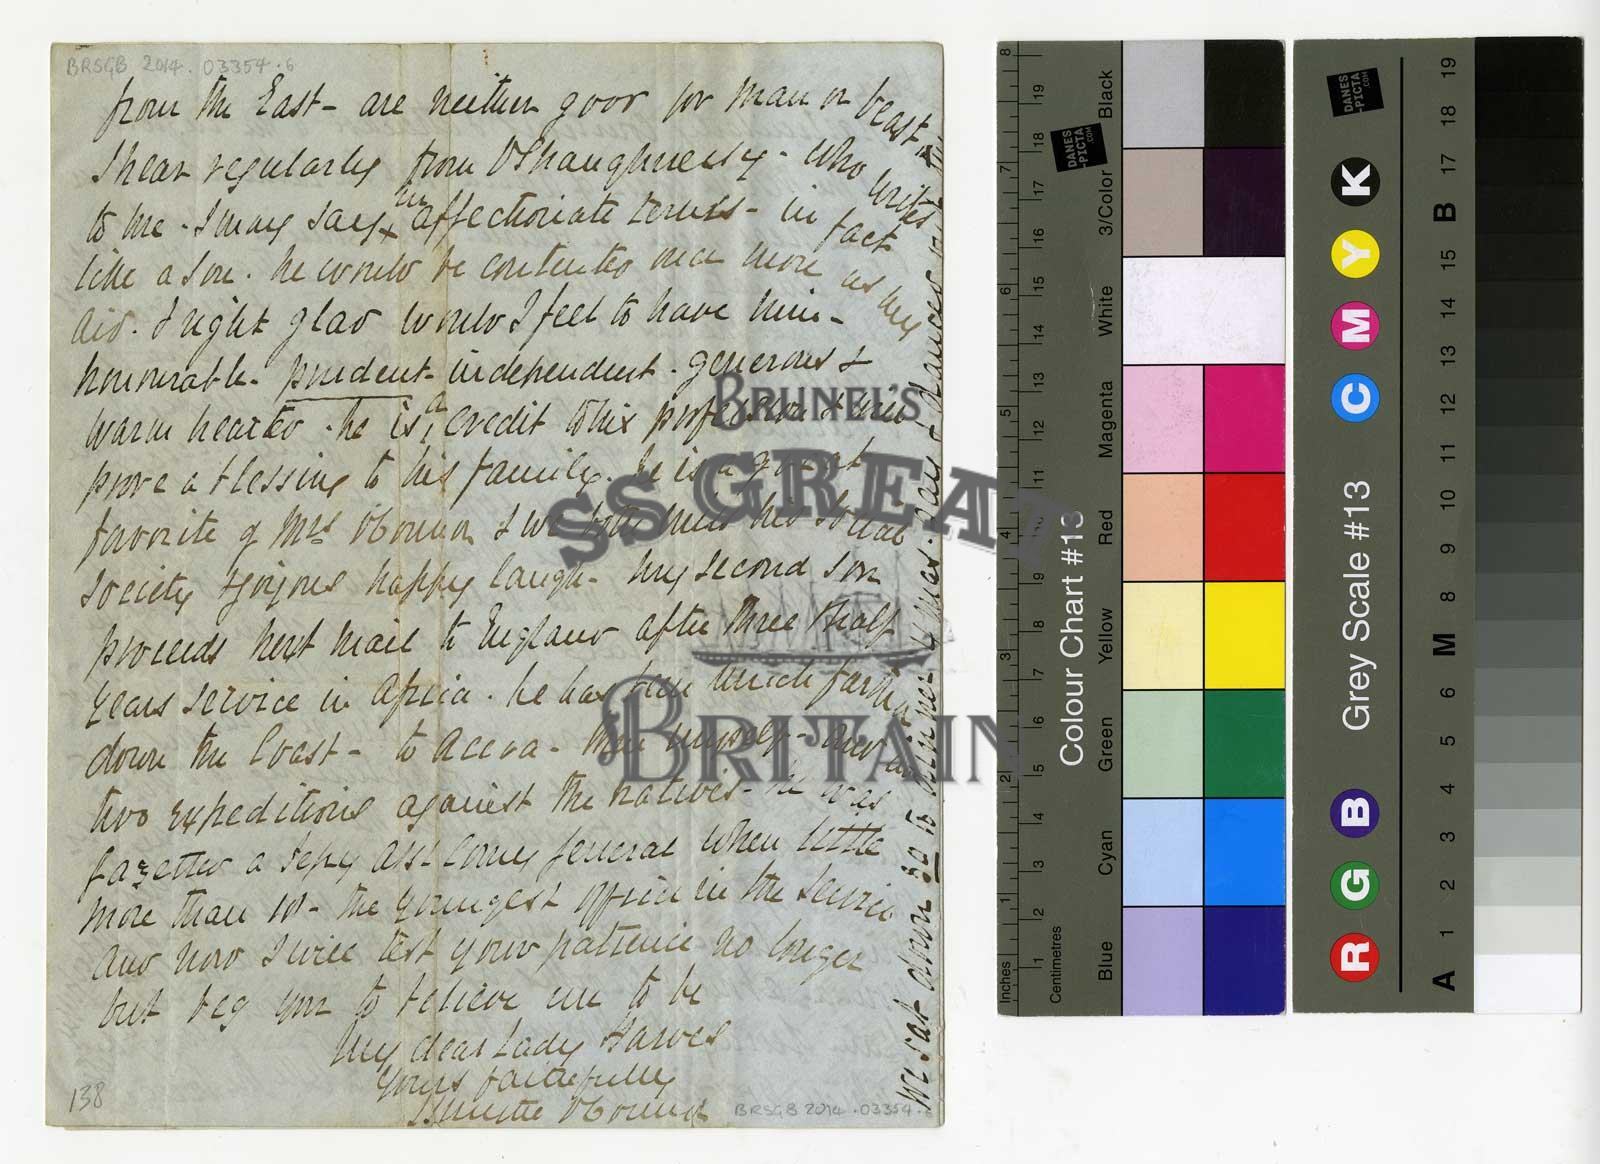 BRSGB 2014.03354.6
from the East - are neither good for man or beast
I hear regularly from O'Shaughnessy - who writes
to me - I may say in affectionate terms - in fact
like a son. he would be contented once more as my
Aid. & right glad would I feel to have him -
honourable - prudent - independent - generous &
warm hearted - he is a credit to his profession & will
prove a blessing to his family. he is a great
favorite of Mrs O'Connor & we both his social
society & joyous happy laugh - My second son
proceeds next mail to England after three & half
years service in Africa. he has been much farther
down the Coast - to Accra - than myself -
two expeditions against the natives - he was
gazetted a Depy Asst Comy General when little
more than 18 - the youngest officer in the service
And now I will test your patience no longer
but beg you to believe me to be
My dear Lady
Yours faithfully
O'Connor
138
BRSGB 2014.03354.6
We sat down 30 to dinner
BRUNEL'S
SS GREAT
BRITAIN
Inches
1 2 3 4 5 6 7 8
Centimetres
1 2 3 4 5 6 7 8 9 10 11 12 13 14 15 16 17 18 19
Colour Chart #13
Blue Cyan Green Yellow Red Magenta White 3/Color Black
DANES
-PICTA
.COM
Grey Scale #13
R G B C M Y K
A 1 2 3 4 5 6 M 8 9 10 11 12 13 14 15 B 17 18 19
DANES
-PICTA
.COM